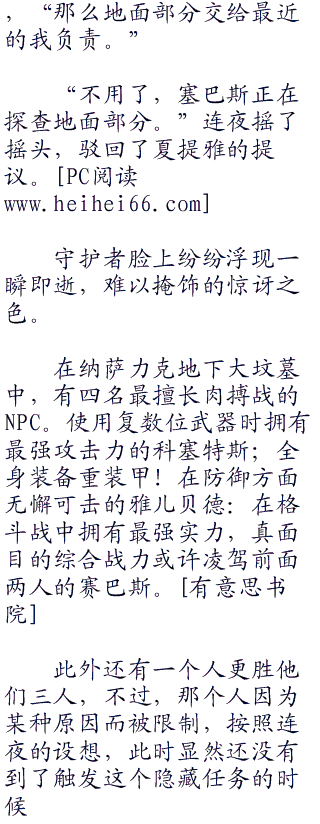 ，“那么地面部分交给最近
的我负责。”
“不用了，塞巴斯正在
探查地面部分。”连夜摇了
摇头，驳回了夏提雅的提
议。[PC阅读
www.heihei66.com]
守护者脸上纷纷浮现一
瞬即逝，难以掩饰的惊讶之
色。
在纳萨力克地下大坟墓
中，有四名最擅长肉搏战的
NPC。使用复数位武器时拥有
最强攻击力的科塞特斯；全
身装备重装甲！在防御方面
无懈可击的雅儿贝德：在格
斗战中拥有最强实力，真面
目的综合战力或许凌驾前面
两人的赛巴斯。[有意思书
院]
此外还有一个人更胜他
们三人，不过，那个人因为
某种原因而被限制，按照连
夜的设想，此时显然还没有
到了触发这个隐藏任务的时
候